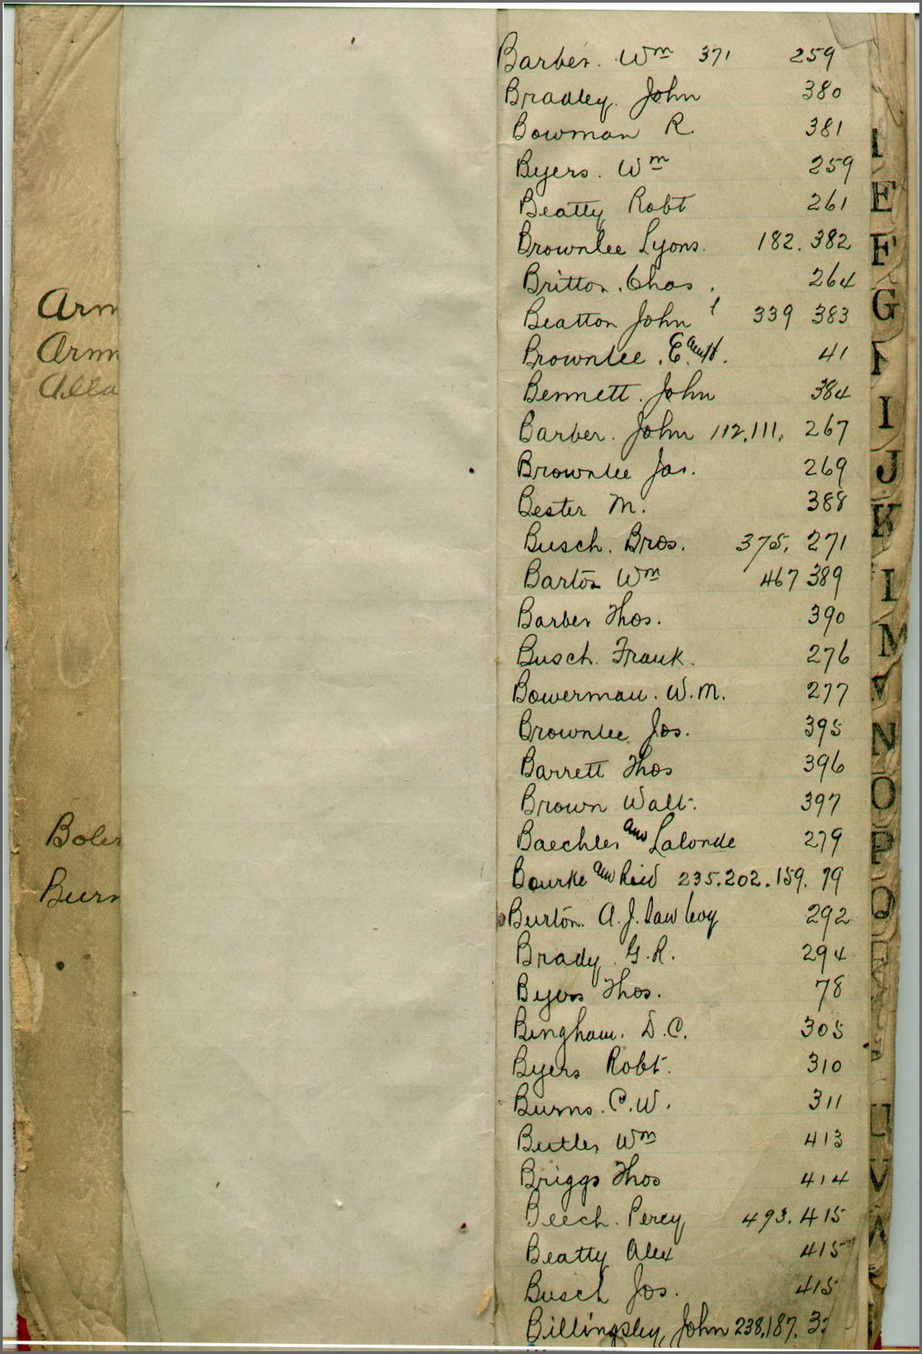 Arm
Arm
Alla
Boler
Burn
Barber. Wm 371 259
Bradley. John 380
Bowman R. 381
Byers. Wm 259
Beatty Robt 261
Brownlee Lyons. 182. 382
Britton. Chas. 264
Beatton John 339 383
Brownlee. E. 41
Bennett. John 384
Barber. John 112, 111, 267
Brownlee Jas. 269
Bester M. 388
Busch. Bros. 375, 271
Barton Wm 467 389
Barber Thos. 390
Busch. Frank. 276
Bowerman. W. M. 277
Brownlee Jos. 395
Barrett Thos 396
Brown Walt. 397
Baechler and Lalonde 279
Bourke and Reid 235. 202. 159. 79
Burton. A. J. 292
Brady G. R. 294
Byers Thos. 78
Bingham. D. C. 305
Byers Robt. 310
Burns. C. W. 311
Butler Wm 413
Briggs Thos 414
Beech. Percy 493. 415
Beatty Alex 415
Busch Jos. 415
Billingsley, John 238, 187.
E
F
G
I
J
K
M
N
O
P
Q
V